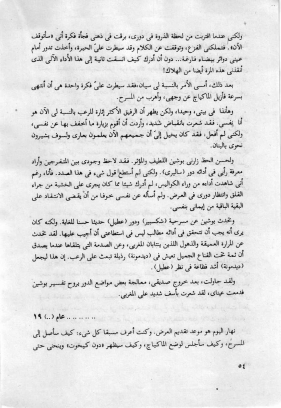 ولكنى عندما اقتربت من لحظة الذروة فى دورى، برقت فى ذهنى فجأة فكرة أنى «سأتوقف
الآن»، فتملكنى الفزع، وتوقفت عن الكلام وقد سيطرت علىّ الحيرة، وأخذت تدور أمام
عينى دوائر بيضاء فارغة... دون أن أدرك كيف انسقت ثانية إلى هذا الأداء الآلى الذى
أنقذنى هذه المرة أيضا من الهلاك!
بعد ذلك، أمسى الأمر بالنسبة لى سيان، فقد سيطرت علىّ فكرة واحدة هى أن أنتهى
بسرعة فأزيل الماكياج عن وجهى، وأهرب من المسرح.
وهأنذا فى بيتى، وحيدا، ولكن يظهر أن الرفيق الأكثر إثارة للرعب بالنسبة لى الآن هو
أنا نفسى. فقد شعرت بانقباض شديد، وأردت أن أقوم بزيارة ما أخفف بها عن نفسى،
ولكنى لم أفعل. فقد كان يخيل إلىّ أن جميعهم الآن يعلمون بعارى وسوف يشيرون
نحوى بالبنان.
ولحسن الحظ زارنى بوشين اللطيف والمؤثر. فقد لاحظ وجودى بين المتفرجين وأراد
معرفة رأيى فى أدائه دور «ساليرى». ولكنى لم أستطع قول شىء فى هذا الصدد. فأنا، رغم
أنى شاهدت أداءه من وراء الكواليس، لم أدرك شيئا مما كان يجرى على الخشبة من جراء
اضطرابى وانتظارى دورى فى العرض. ولم أسأله عن نفسى خوفا من أن يقضى الانتقاد على
البقية الباقية من إيمانى بنفسى.
وتحدث بوشين عن مسرحية (شكسبير) ودور (عطيل) حديثا حسنا للغاية. ولكنه كان
يرى أنه يجب أن تتحقق فى أدائه مطالب ليس فى استطاعتى أن أجيب عليها. لقد تحدث
عن المرارة العميقة والذهول اللذين ينتابان المغربى، وعن الصدمة التى يتلقاها عندما يصدق
أن ثمة تحت القناع الجميل تعيش فى (ديدمونة) رذيلة تبعث على الرعب. إن هذا ليجعل
(ديدمونة) أشد فظاعة فى نظر (عطيل).
ولقد حاولت، بعد خروج صديقى، معالجة بعض مواضع الدور بروح تفسير بوشين
فدمعت عيناى، لقد شعرت بأسف شديد على المغربى.
.......... عام (..) ١٩
نهار اليوم هو موعد تقديم العرض. وكنت أعرف مسبقا كل شىء: كيف سأصل إلى
المسرح، وكيف سأجلس لوضع الماكياج، كيف سيظهر «دون كيخوت» وينحنى حتى
٥٤